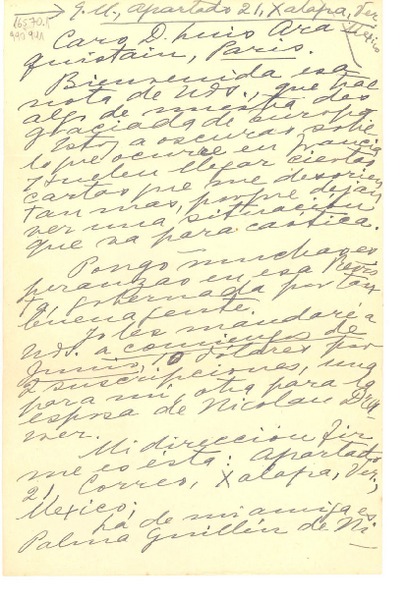 G.M., Apartado 21, Xalapa, Ver
México
165701
990911
Caro D. Luis Ara
quistain, Paris.
Bienvenida esa
nota de Uds., que trae
algo de nuestra des
graciada de Europa
Estoy a oscuras sobre
lo que ocurre en Francia
Suelen llegar ciertas
cartas que me desorien
tan mas, porque dejan
ver una situación
que va para caótica.
Pongo muchas es
peranzas en esa Revis
ta, gobernada por tan
buena gente.
Yo les mandaré a
Uds. a comienzos de
Junio, 10 dólares por
2 suscripciones, una
para mí, otra para la
esposa de Nicolau D'Ol
wer.
Mi dirección fir
me es ésta: Apartado
21, Correo, Xalapa, Ver.,
Mexico;
La de mi amiga es:
Palma Guillén de Ni-